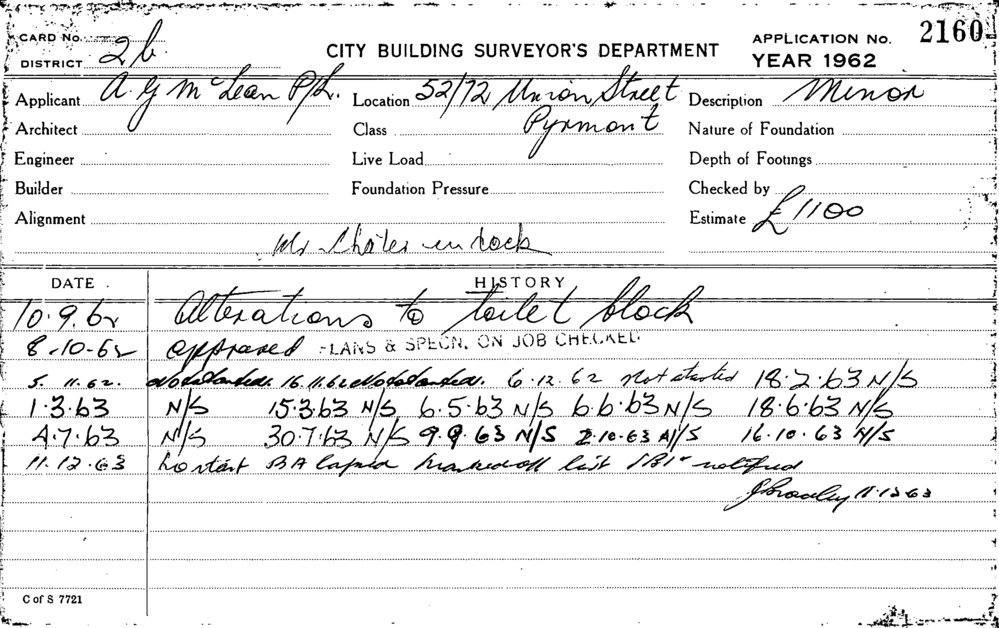 CARD No.
DISTRICT 2b
CITY BUILDING SURVEYOR'S DEPARTMENT
APPLICATION No. 2160
YEAR 1962
Applicant A G McLean P/L. Location 52/72 Union Street Description Minor
Architect Class Pyrmont Nature of Foundation
Engineer Live Load Depth of Footings
Builder Foundation Pressure Checked by
Alignment Estimate £1100
Mr
DATE HISTORY
10.9.62 Alterations to toilet block
8.10.62 approved PLANS & SPECN. ON JOB CHECKED
5.11.62. Not started. 16.11.62 Not started. 6.12.62 Not started 18.2.63 N/S
1.3.63 N/S 15.3.63 N/S 6.5.63 N/S 6.6.63 N/S 18.6.63 N/S
4.7.63 N/S 30.7.63 N/S 9.9.63 N/S 2.10.63 N/S 16.10.63 N/S
11.12.63 No start BA lapsed marked off list notified
11.12.63
C of S 7721